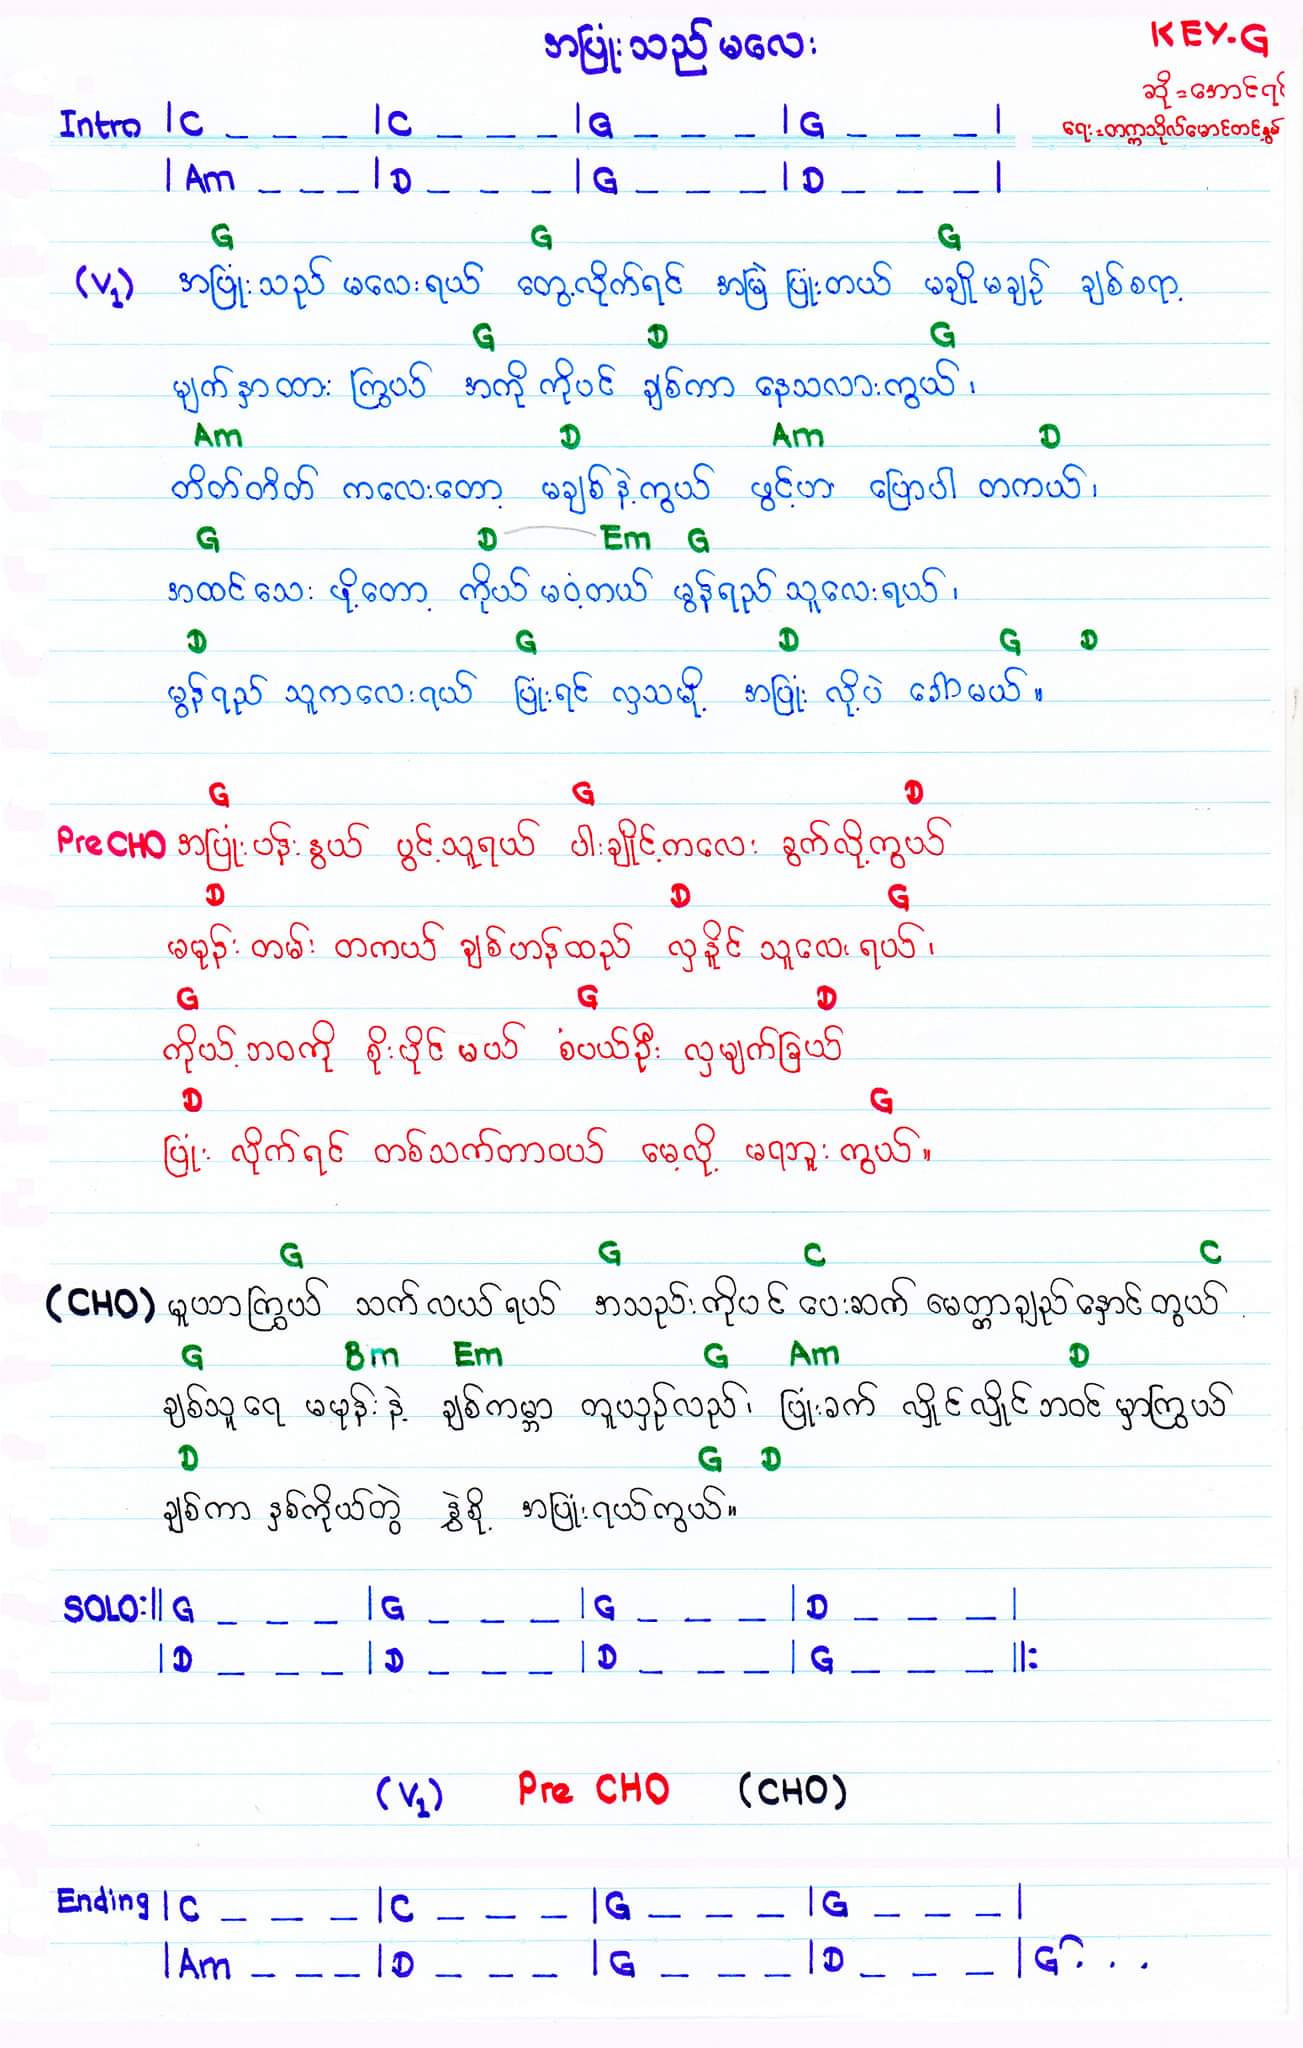 အပြုံးသည် မလေး
KEY-G
ဆို = အောင်ရင်
ရေး = တက္ကသိုလ်မောင်တင့်နွမ်
Intro |C _ _ _ |C _ _ _ |G _ _ _ |G _ _ _ |
|Am _ _ _ |D _ _ _ |G _ _ _ |D _ _ _ |
G G G
(V1) အပြုံးသည် မလေးရယ် တွေ့လိုက်ရင် အမြဲ ပြုံးတယ် မချိုမချဉ် ချစ်စရာ့
G D G
မျက်နှာထား ကြွယ် အကို ကိုပင် ချစ်ကာ နေသလားကွယ်၊
Am D Am D
တိတ်တိတ် ကလေးတော့ မချစ်နဲ့ကွယ် ဖွင့်ဟ ပြောပါ တကယ်၊
G D Em G
အထင်သေး ဖို့တော့ ကိုယ် မဝံ့တယ် မွန်ရည် သူလေးရယ်၊
D G D G D
မွန်ရည် သူကလေးရယ် ပြုံးရင် လှသမို့ အပြုံး လို့ပဲ ခေါ်မယ်။
G G D
Pre CHO အပြုံးပန်းနွယ် ပွင့်သူရယ် ပါးချိုင့်ကလေး ခွက်လို့ကွယ်
D D G
မမုန်း တမ်း တကယ် ချစ်ဟန်ထည် လှနိုင် သူလေးရယ်၊
G G D
ကိုယ့်ဘဝကို စိုးပိုင်မယ် စံပယ်ဦး လှမျက်ခြယ်
D G
ပြုံး လိုက်ရင် တစ်သက်တာဝယ် မေ့လို့ မရဘူးကွယ်။
G G C C
(CHO) မူယာကြွယ် သက်လယ်ရယ် အသည်းကိုပင် ပေးဆက် မေတ္တာချည်နှောင်တွယ်
G Bm Em G Am D
ချစ်သူရေ မမုန်းနဲ့ ချစ်ကမ္ဘာ တူယှဉ်လည်၊ ပြုံးခက် လှိုင်လှိုင်ဘဝင်မှာကြွယ်
D G D
ချစ်ကာ နှစ်ကိုယ်တွဲ နွှဲစို့ အပြုံးရယ်ကွယ်။
SOLO:||G _ _ _ |G _ _ _ |G _ _ _ |D _ _ _ |
|D _ _ _ |D _ _ _ |D _ _ _ |G _ _ _ ||:
(V1) Pre CHO (CHO)
Ending |C _ _ _ |C _ _ _ |G _ _ _ |G _ _ _ |
|Am _ _ _ |D _ _ _ |G _ _ _ |D _ _ _ |G . . .